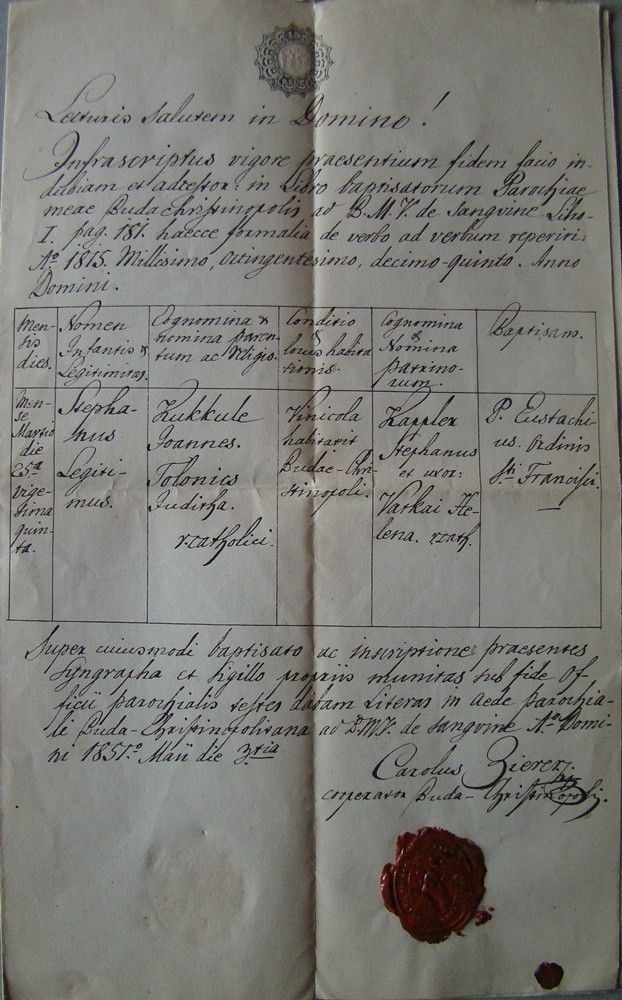 Lecturis Salutem in Domino!
Infrascriptus vigore praesentium fidem facio in-
dubiam et adtestor: in Libro baptisatorum Parochiae
meae Budachristinopolis ad B.M.V. de Sanguine Libo-
I. pag. 181. haecce formalia de verbo ad verbum reperiri:
Aº 1815. Millesimo, octingentesimo, decimo-quinto. Anno
Domini.
Men-
sis
dies.
Nomen
Infantis &
Legitimitas.
Cognomina &
nomina paren-
tum ac Religio.
Conditio
&
locus habita
tionis.
Cognomina
&
Nomina
patrino-
rum.
Baptisans.
Men-
se
Martio
die
25ª
vige-
sima
quin-
ta.
Stepha-
nus
Legiti-
mus.
Kukkule
Joannes.
Tolonics
Juditha.
r. catholici.
Vinicola
habitavit
Budae-Chri-
stinopoli.
Kappler
Stephanus
et uxor:
Varkai He-
lena. r. cath.
P. Eustachi-
us. Ordinis
Sti Francisci.
Super cuiusmodi baptisato ac inscriptione praesentes
Syngrapha et Sigillo propriis munitas sub fide Of
ficii parochialis testes dabam Literas in aede parochia-
li Buda-Christinopolitana ad B.M.V. de sanguine Aº Domi-
ni 1851º Maii die 3tia
Carolus Zierer
cooperator Buda-Christinopoli.